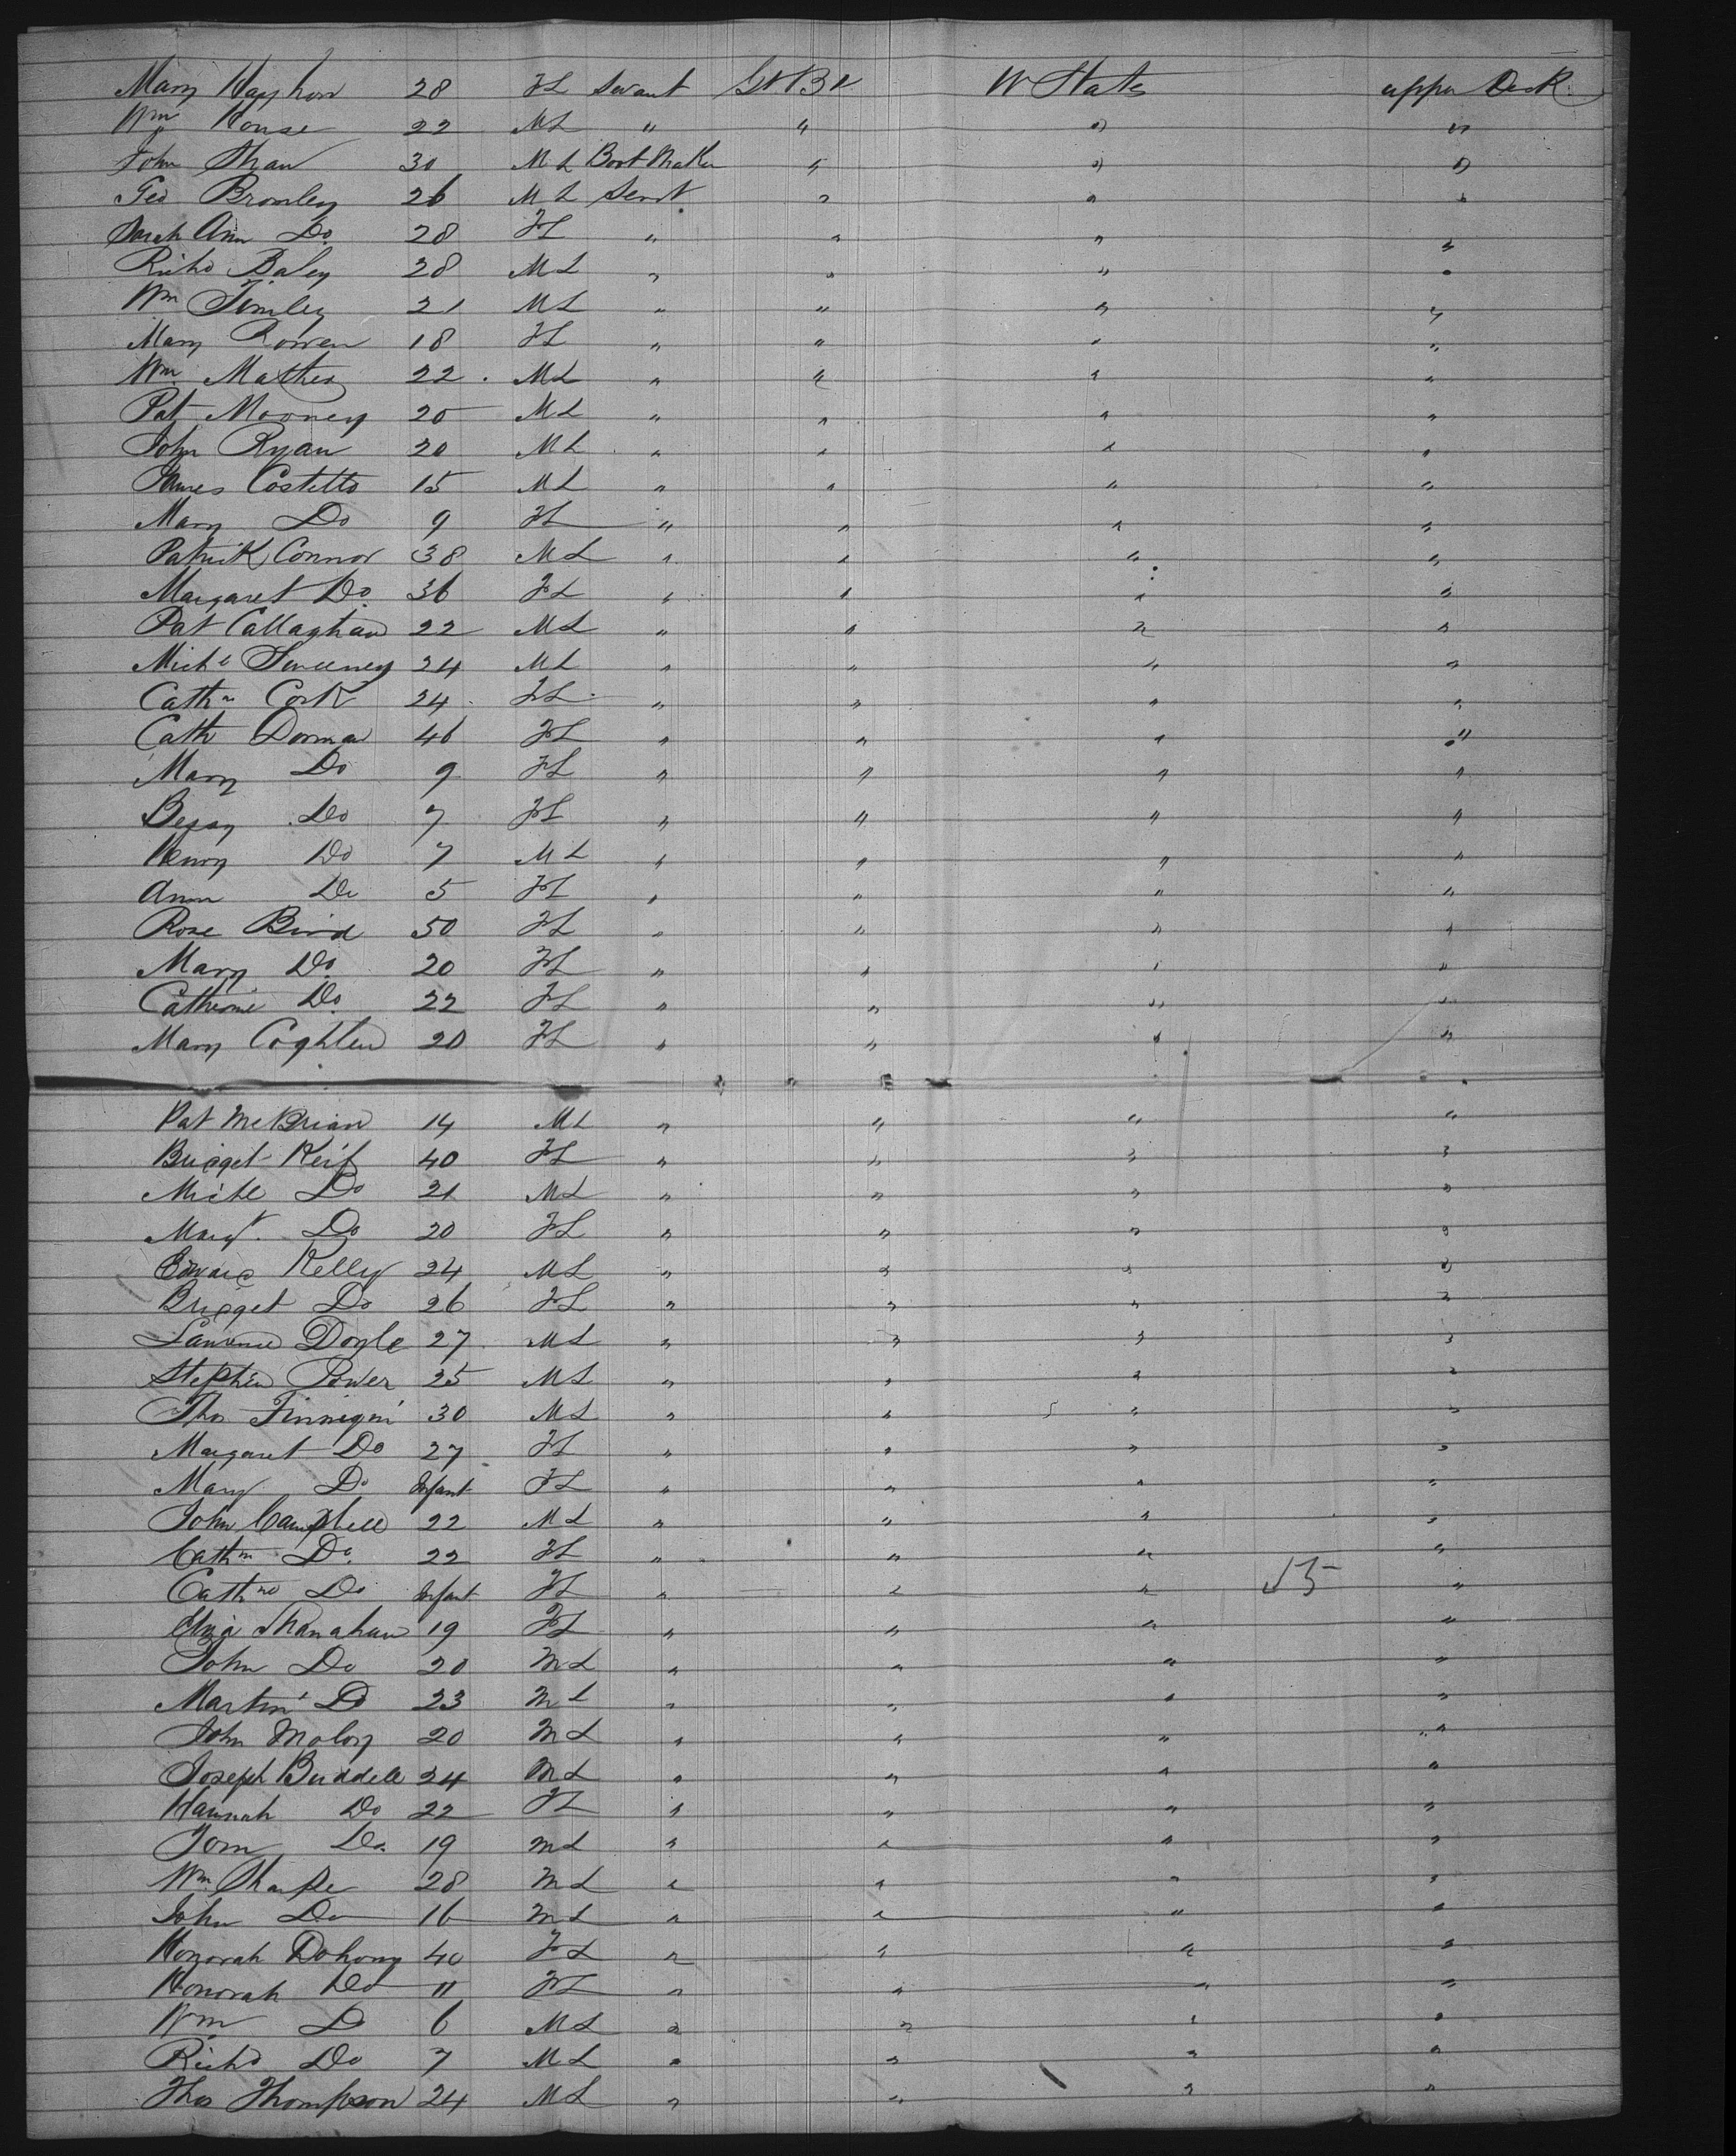 Mary Hayhon 28 F L Servant Gt Br U States upper Deck
Wm House 22 M L " " " "
John Shaw 30 M L Boot Maker " " "
Geo Bromley 26 M L Servt " " "
Sarah Ann Do 28 F L " " " "
Richd Baley 28 M L " " " "
Wm Tomley 21 M L " " " "
Mary Rowen 18 F L " " " "
Wm Mather 22 M L " " " "
Pat Mooney 20 M L " " " "
John Ryan 20 M L " " " "
James Costello 15 M L " " " "
Mary Do 9 F L " " " "
Patrick Connor 38 M L " " " "
Margaret Do 36 F L " " " "
Pat Callaghan 22 M L " " " "
Michl Sweeney 24 M L " " " "
Cathn Cork 24 F L " " " "
Cath Dorman 46 F L " " " "
Mary Do 9 F L " " " "
Do 7 F L " " " "
Henry Do 7 M L " " " "
Ann Do 5 F L " " " "
Rose Bird 50 F L " " " "
Mary Do 20 F L " " " "
Catherine Do 22 F L " " " "
Mary Coghlen 20 F L " " " "
Pat McBrian 14 M L " " " "
Bridget Keif 40 F L " " " "
Michl Do 21 M L " " " "
Margt Do 20 F L " " " "
Edward Kelly 24 M L " " " "
Bridget Do 26 F L " " " "
Lawrence Doyle 27 M L " " " "
Stephen Power 25 M L " " " "
Thos Finnigan 30 M L " " " "
Margaret Do 27 F L " " " "
Mary Do Infant F L " " " "
John Campbell 22 M L " " " "
Cathn Do 22 F L " " " "
Cathne Do Infant F L " " " "
Eliza Shanahan 19 F L " " " "
John Do 20 M L " " " "
Martin Do 23 M L " " " "
John Moloy 20 M L " " " "
Joseph Buddell 24 M L " " " "
Hannah Do 22 F L " " " "
Tom Do 19 M L " " " "
Wm Sharpe 28 M L " " " "
John Do 16 M L " " " "
Honorah Dohony 40 F L " " " "
Honorah Do 11 F L " " " "
Wm Do 6 M L " " " "
Richd Do 7 M L " " " "
Thos Thompson 24 M L " " " "